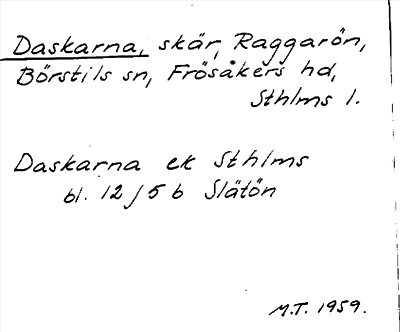 Daskarna, skär, Raggarön,
Börstils sn, Frösåkers hd,
Sthlms l.
Daskarna ek Sthlms
bl. 12 J 5 b Slätön
M.T. 1959.